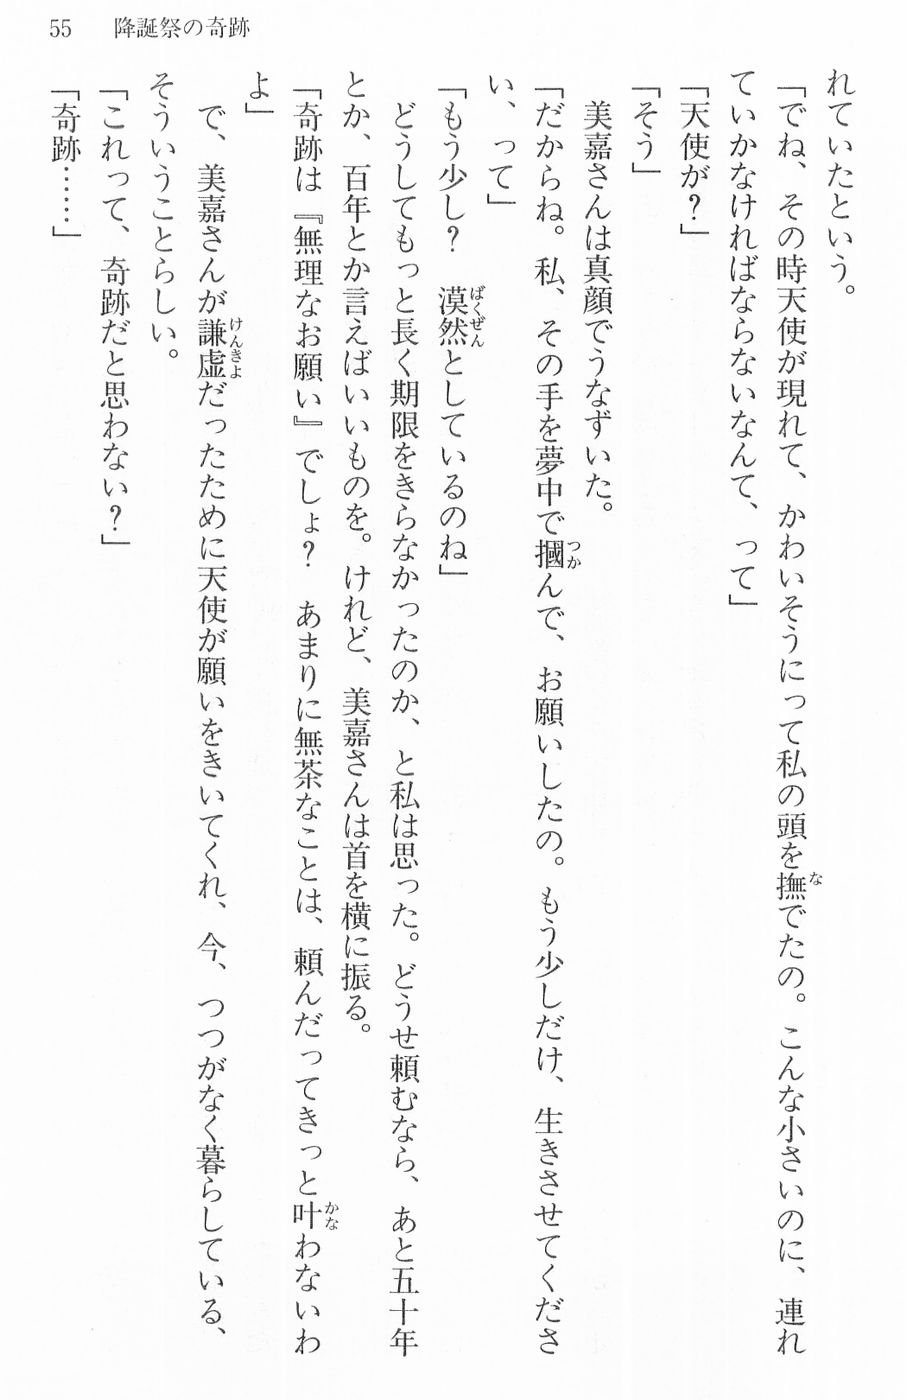 55　降誕祭の奇跡
れていたという。
「でね、その時天使が現れて、かわいそうにって私の頭を撫でたの。こんな小さいのに、連れ
ていかなければならないなんて、って」
「天使が？」
「そう」
美嘉さんは真顔でうなずいた。
「だからね。私、その手を夢中で摑んで、お願いしたの。もう少しだけ、生きさせてくださ
い、って」
「もう少し？　漠然としているのね」
どうしてもっと長く期限をきらなかったのか、と私は思った。どうせ頼むなら、あと五十年
とか、百年とか言えばいいものを。けれど、美嘉さんは首を横に振る。
「奇跡は『無理なお願い』でしょ？　あまりに無茶なことは、頼んだってきっと叶わないわ
よ」
で、美嘉さんが謙虚だったために天使が願いをきいてくれ、今、つつがなく暮らしている、
そういうことらしい。
「これって、奇跡だと思わない？」
「奇跡……」